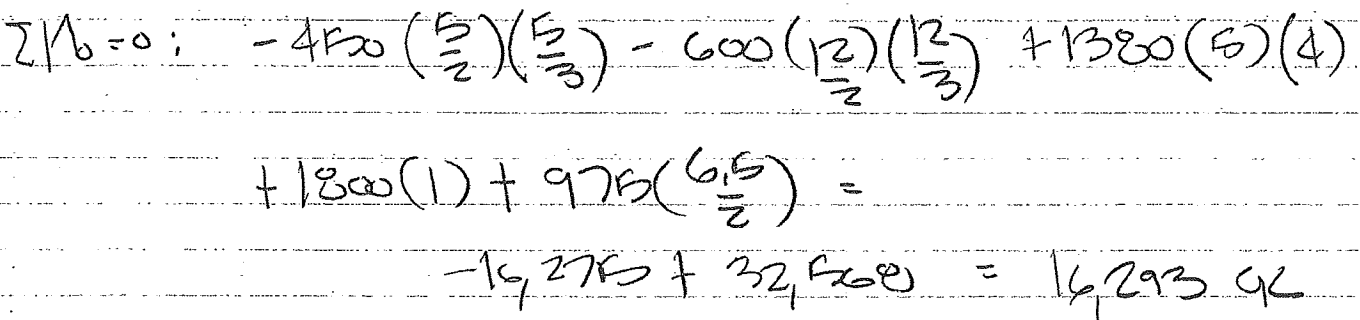 ΣM₀=0: -450(5/2)(5/3) - 600(12/2)(12/3) + 1380(5)(4)
+1800(1) + 975(6.5/2) =
-16,275 + 32,568 = 16,293 OK